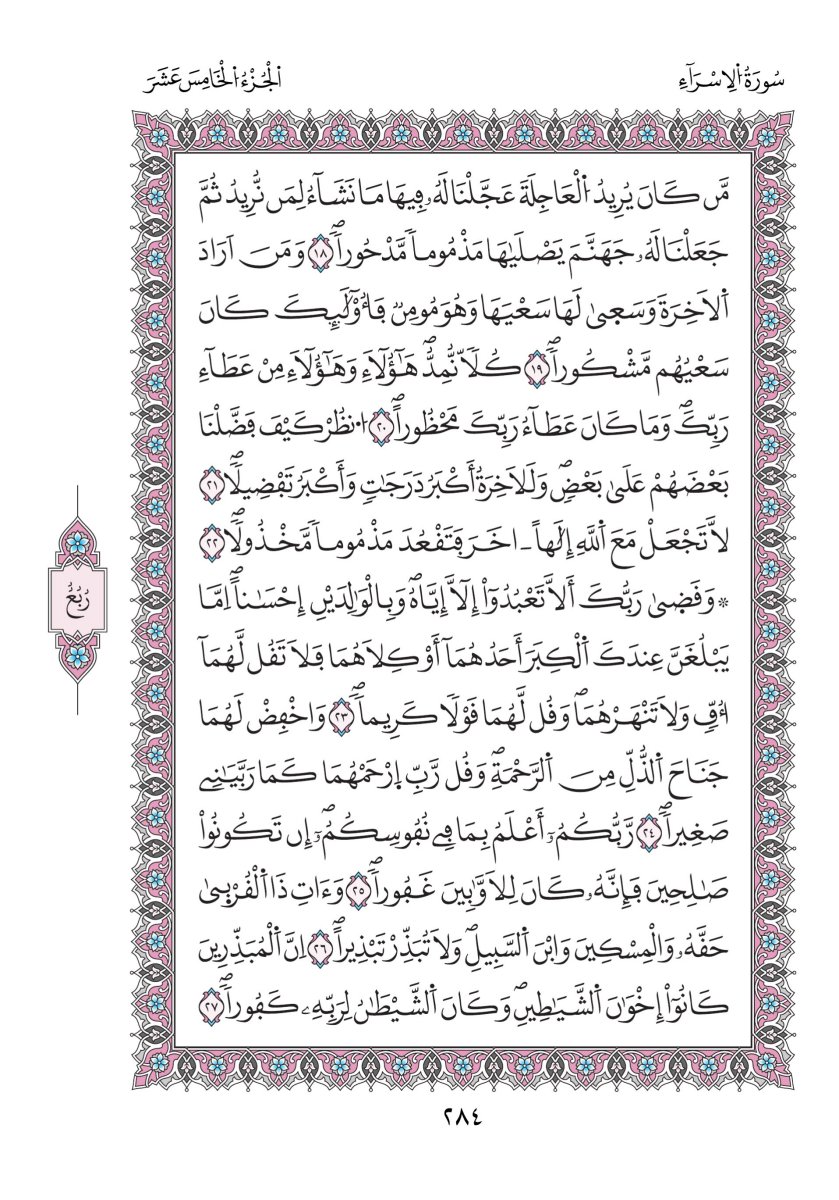 سُورَةُ اُ۬لِاسْرَآءِ
اَ۬لْجُزْءُ اُ۬لْخَامِسَ عَشَرَ
مَّن كَانَ يُرِيدُ اُ۬لْعَاجِلَةَ عَجَّلْنَا لَهُۥ فِيهَا مَا نَشَآءُ لِمَن نُّرِيدُ ثُمَّ
جَعَلْنَا لَهُۥ جَهَنَّمَ يَصْلَيٰهَا مَذْمُوماٗ مَّدْحُوراٗۖ ١٨ وَمَنَ اَرَادَ
اَ۬لَاخِرَةَ وَسَع۪ىٰ لَهَا سَعْيَهَا وَهُوَ مُومِنٞ فَأُوْلَٰٓئِكَ كَانَ
سَعْيُهُم مَّشْكُوراٗۖ ١٩ كُلّاٗ نُّمِدُّ هَٰٓؤُلَآءِ وَهَٰٓؤُلَآءِ مِنْ عَطَآءِ
رَبِّكَۖ وَمَا كَانَ عَطَآءُ رَبِّكَ مَحْظُوراًۖ ٢٠ اُ۟نظُرْ كَيْفَ فَضَّلْنَا
بَعْضَهُمْ عَلَىٰ بَعْضٖۖ وَلَلَاخِرَةُ أَكْبَرُ دَرَجَٰتٖ وَأَكْبَرُ تَفْضِيلاٗۖ ٢١
لَّا تَجْعَلْ مَعَ اَ۬للَّهِ إِلَٰهاً ـ اخَرَ فَتَقْعُدَ مَذْمُوماٗ مَّخْذُولاٗۖ ٢٢
۞ وَقَض۪ىٰ رَبُّكَ أَلَّا تَعْبُدُوٓاْ إِلَّآ إِيَّاهُۖ وَبِالْوَٰلِدَيْنِ إِحْسَٰناًۖ اِمَّا
يَبْلُغَنَّ عِندَكَ اَ۬لْكِبَرَ أَحَدُهُمَآ أَوْ كِلَاهُمَا فَلَا تَقُل لَّهُمَآ
أُفّٖ وَلَا تَنْهَرْهُمَاۖ وَقُل لَّهُمَا قَوْلاٗ كَرِيماٗۖ ٢٣ وَاخْفِضْ لَهُمَا
جَنَاحَ اَ۬لذُّلِّ مِنَ اَ۬لرَّحْمَةِۖ وَقُل رَّبِّ اِ۪رْحَمْهُمَا كَمَا رَبَّيَٰنِے
صَغِيراٗۖ ٢٤ رَّبُّكُمُۥٓ أَعْلَمُ بِمَا فِے نُفُوسِكُمُۥٓۖ إِن تَكُونُواْ
صَٰلِحِينَ فَإِنَّهُۥ كَانَ لِلَاوَّٰبِينَ غَفُوراٗۖ ٢٥ وَءَاتِ ذَا اَ۬لْقُرْب۪ىٰ
حَقَّهُۥ وَالْمِسْكِينَ وَابْنَ اَ۬لسَّبِيلِۖ وَلَا تُبَذِّرْ تَبْذِيراًۖ ٢٦ اِنَّ اَ۬لْمُبَذِّرِينَ
كَانُوٓاْ إِخْوَٰنَ اَ۬لشَّيَٰطِينِۖ وَكَانَ اَ۬لشَّيْطَٰنُ لِرَبِّهِۦ كَفُوراٗۖ ٢٧
رُبُعُ
٢٨٤